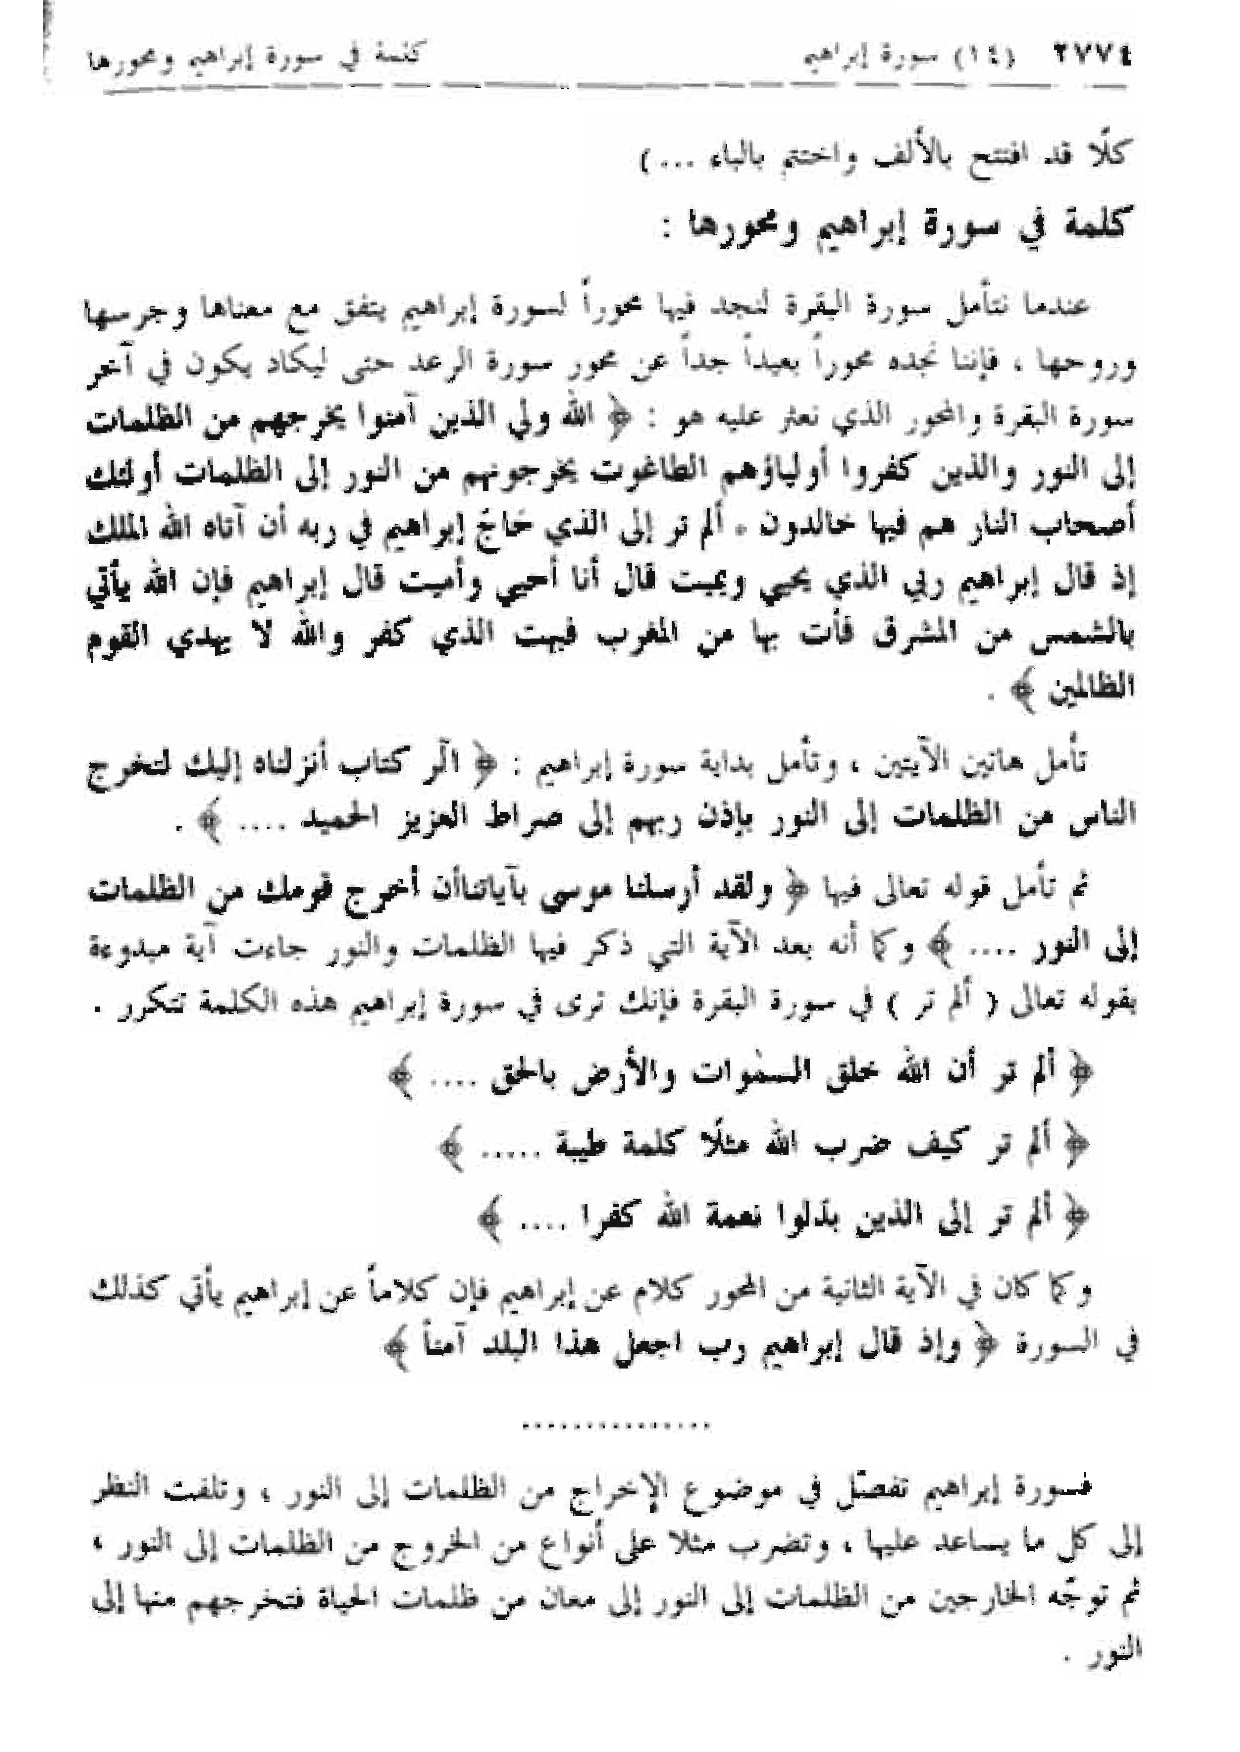 ٢٧٧٤ (١٤) سورة إبراهيم كلمة في سورة إبراهيم ومحورها
كلًا قد افتتح بالألف واختتم بالباء ... )
كلمة في سورة إبراهيم ومحورها :
عندما نتأمل سورة البقرة لنجد فيها محوراً لسورة إبراهيم يتفق مع معناها وجرسها
وروحها ، فإننا نجده محوراً بعيداً جداً عن محور سورة الرعد حتى ليكاد يكون في آخر
سورة البقرة والمحور الذي نعثر عليه هو : ﴿ الله ولي الذين آمنوا يخرجهم من الظلمات
إلى النور والذين كفروا أولياؤهم الطاغوت يخرجونهم من النور إلى الظلمات أولئك
أصحاب النار هم فيها خالدون . ألم تر إلى الذي حَاجّ إبراهيم في ربه أن آتاه الله الملك
إذ قال إبراهيم ربي الذي يحيي ويميت قال أنا أحيي وأميت قال إبراهيم فإن الله يأتي
بالشمس من المشرق فأت بها من المغرب فبهت الذي كفر والله لا يهدي القوم
الظالمين ﴾ .
تأمل هاتين الآيتين ، وتأمل بداية سورة إبراهيم : ﴿ الٓر كتاب أنزلناه إليك لتخرج
الناس من الظلمات إلى النور بإذن ربهم إلى صراط العزيز الحميد .... ﴾ .
ثم تأمل قوله تعالى فيها ﴿ ولقد أرسلنا موسى بآياتناأن أخرج قومك من الظلمات
إلى النور .... ﴾ وكما أنه بعد الآية التي ذكر فيها الظلمات والنور جاءت آية مبدوءة
بقوله تعالى ( ألم تر ) في سورة البقرة فإنك ترى في سورة إبراهيم هذه الكلمة تتكرر .
﴿ ألم تر أن الله خلق السمٰوات والأرض بالحق .... ﴾
﴿ ألم تر كيف ضرب الله مثلًا كلمة طيبة ..... ﴾
﴿ ألم تر إلى الذين بدّلوا نعمة الله كفرا .... ﴾
وكما كان في الآية الثانية من المحور كلام عن إبراهيم فإن كلاماً عن إبراهيم يأتي كذلك
في السورة ﴿ وإذ قال إبراهيم رب اجعل هذا البلد آمناً ﴾
...............
فسورة إبراهيم تفصّل في موضوع الإخراج من الظلمات إلى النور ، وتلفت النظر
إلى كل ما يساعد عليها ، وتضرب مثلا على أنواع من الخروج من الظلمات إلى النور ،
ثم توجّه الخارجين من الظلمات إلى النور إلى معان من ظلمات الحياة فتخرجهم منها إلى
النور .